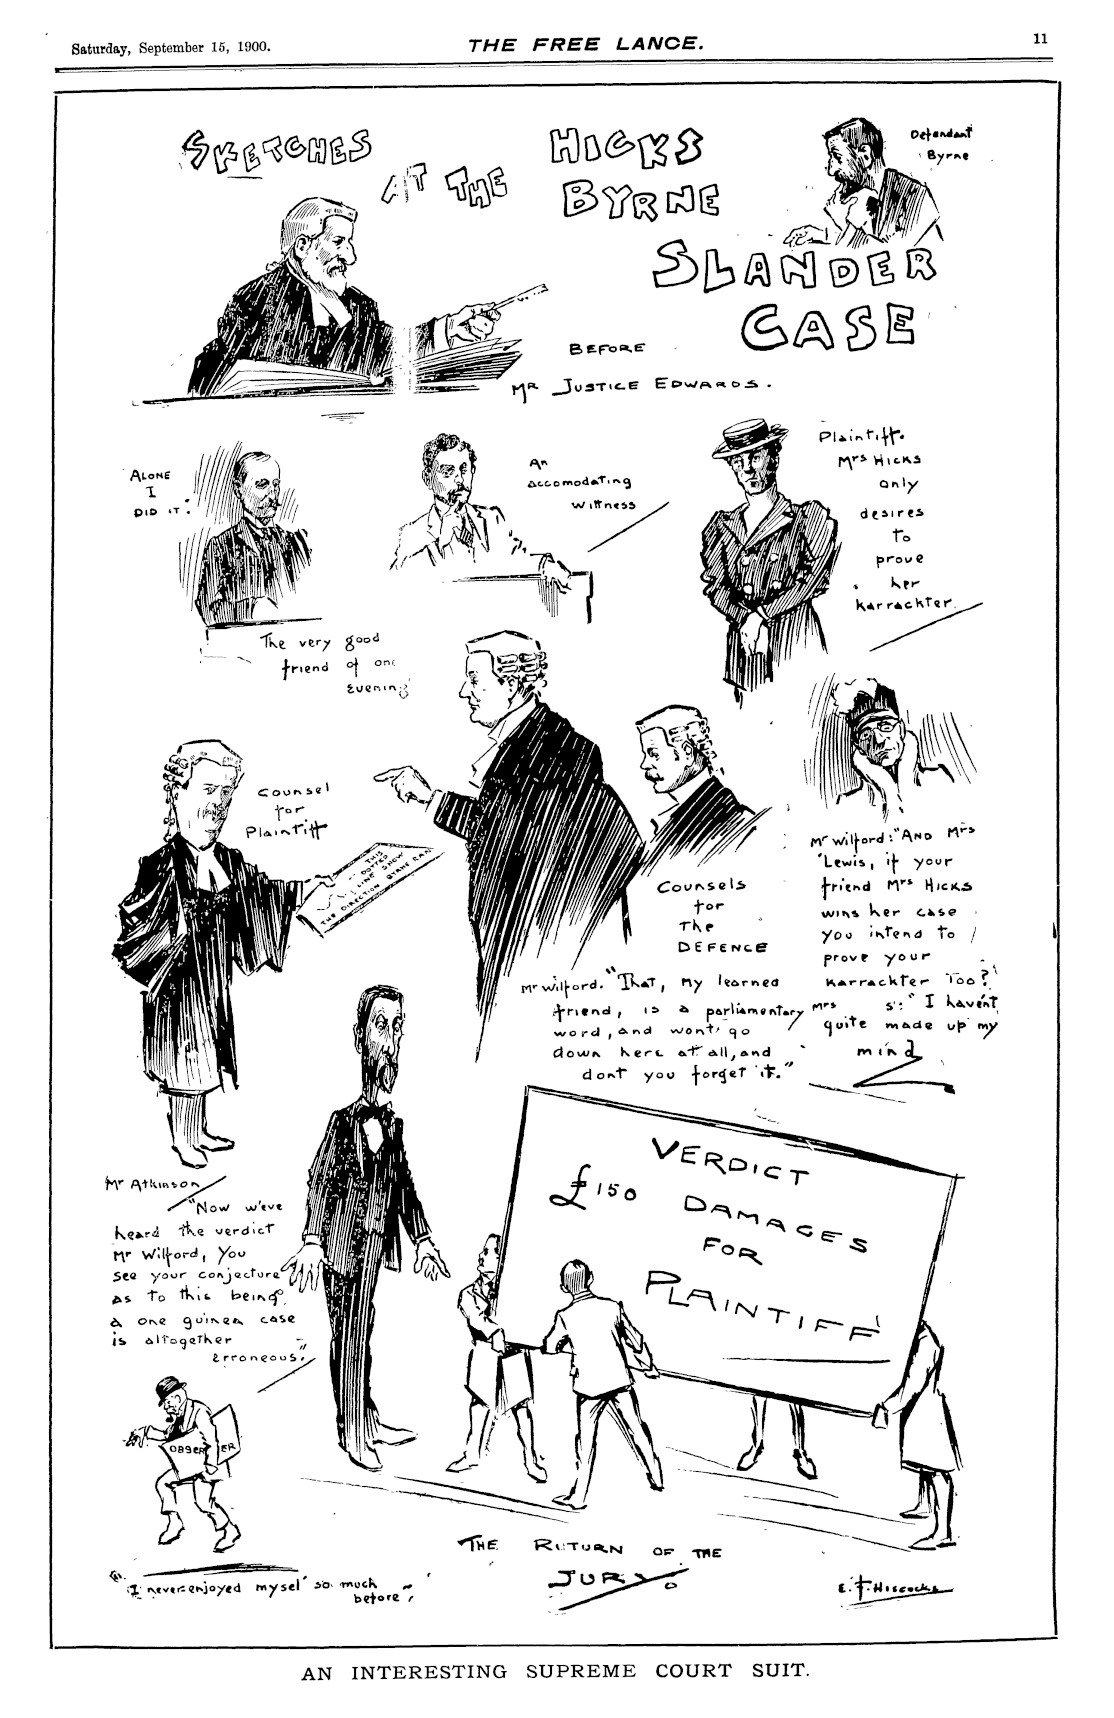 Saturday, September 15, 1900.
THE FREE LANCE.
11
SKETCHES
AT THE
HICKS
BYRNE
SLANDER
CASE
Defendant
Byrne
BEFORE
MR JUSTICE EDWARDS.
ALONE
I
DID IT!
An
accomodating
wittness
Plaintiff.
Mrs HICKS
only
desires
to
prove
her
karrackter.
The very good
friend of one
Evening
Counsel
for
Plaintiff
THIS
DOTTED
LINE SHOW
THE DIRECTION BYRNE RAN
Counsels
for
The
DEFENCE
Mr Wilford: "AND Mrs
Lewis, if your
friend Mrs HICKS
wins her case
you intend to
prove your
karrackter too?"
Mrs s: "I havent
quite made up my
mind
Mr Wilford. "That, my learned
friend, is a parliamentary
word, and wont go
down here at all, and
dont you forget it."
Mr Atkinson
"Now w'eve
heard the verdict
Mr Wilford, you
see your conjecture
as to this being
a one guinea case
is altogether
erroneous."
VERDICT
£150 DAMAGES
FOR
PLAINTIFF
OBSER ER
"I never enjoyed mysel' so much
before"
THE RETURN OF THE
JURY.
E. F. Hiscocks
AN INTERESTING SUPREME COURT SUIT.